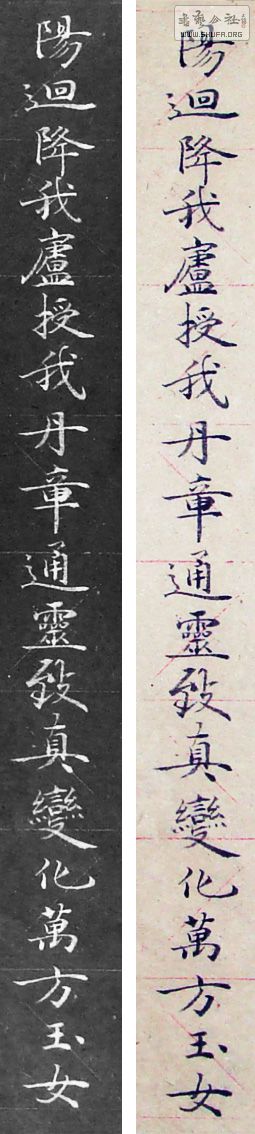 WWW.SHUFA.ORG
陽迴降我廬授我丹章通靈致真變化萬方玉女
陽迴降我廬授我丹章通靈致真變化萬方玉女